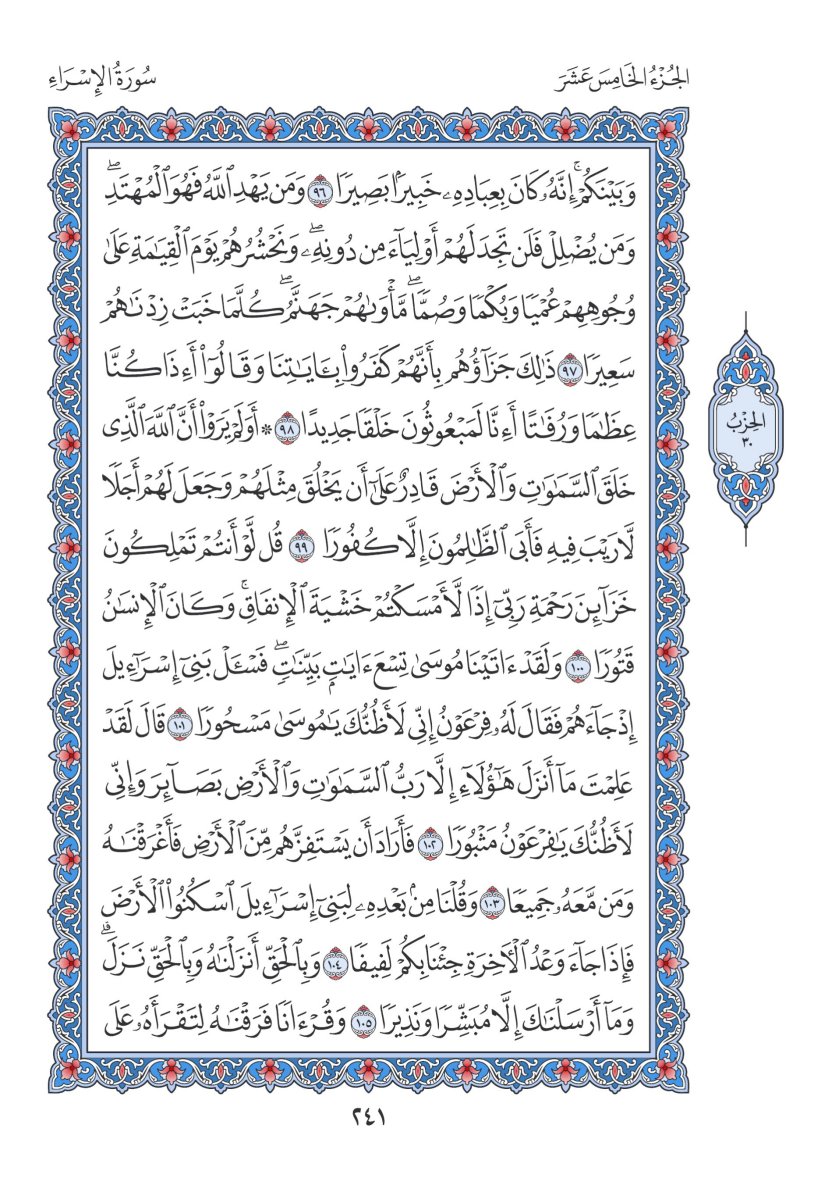 الجُزْءُ الخَامِسَ عَشَرَ
سُورَةُ الإِسْرَاءِ
وَبَيْنَكُمْۚ إِنَّهُۥ كَانَ بِعِبَادِهِۦ خَبِيرَۢا بَصِيرٗا ٩٦ وَمَن يَهۡدِ ٱللَّهُ فَهُوَ ٱلۡمُهۡتَدِۖ
وَمَن يُضۡلِلۡ فَلَن تَجِدَ لَهُمۡ أَوۡلِيَآءَ مِن دُونِهِۦۖ وَنَحۡشُرُهُمۡ يَوۡمَ ٱلۡقِيَٰمَةِ عَلَىٰ
وُجُوهِهِمۡ عُمۡيٗا وَبُكۡمٗا وَصُمّٗاۖ مَّأۡوَىٰهُمۡ جَهَنَّمُۖ كُلَّمَا خَبَتۡ زِدۡنَٰهُمۡ
سَعِيرٗا ٩٧ ذَٰلِكَ جَزَآؤُهُم بِأَنَّهُمۡ كَفَرُواْ بِـَٔايَٰتِنَا وَقَالُوٓاْ أَءِذَا كُنَّا
عِظَٰمٗا وَرُفَٰتًا أَءِنَّا لَمَبۡعُوثُونَ خَلۡقٗا جَدِيدًا ٩٨ * أَوَلَمۡ يَرَوۡاْ أَنَّ ٱللَّهَ ٱلَّذِي
خَلَقَ ٱلسَّمَٰوَٰتِ وَٱلۡأَرۡضَ قَادِرٌ عَلَىٰٓ أَن يَخۡلُقَ مِثۡلَهُمۡ وَجَعَلَ لَهُمۡ أَجَلٗا
لَّا رَيۡبَ فِيهِ فَأَبَى ٱلظَّٰلِمُونَ إِلَّا كُفُورٗا ٩٩ قُل لَّوۡ أَنتُمۡ تَمۡلِكُونَ
خَزَآئِنَ رَحۡمَةِ رَبِّيٓ إِذٗا لَّأَمۡسَكۡتُمۡ خَشۡيَةَ ٱلۡإِنفَاقِۚ وَكَانَ ٱلۡإِنسَٰنُ
قَتُورٗا ١٠٠ وَلَقَدۡ ءَاتَيۡنَا مُوسَىٰ تِسۡعَ ءَايَٰتِۭ بَيِّنَٰتٖۖ فَسۡـَٔلۡ بَنِيٓ إِسۡرَٰٓءِيلَ
إِذۡ جَآءَهُمۡ فَقَالَ لَهُۥ فِرۡعَوۡنُ إِنِّي لَأَظُنُّكَ يَٰمُوسَىٰ مَسۡحُورٗا ١٠١ قَالَ لَقَدۡ
عَلِمۡتَ مَآ أَنزَلَ هَٰٓؤُلَآءِ إِلَّا رَبُّ ٱلسَّمَٰوَٰتِ وَٱلۡأَرۡضِ بَصَآئِرَ وَإِنِّي
لَأَظُنُّكَ يَٰفِرۡعَوۡنُ مَثۡبُورٗا ١٠٢ فَأَرَادَ أَن يَسۡتَفِزَّهُم مِّنَ ٱلۡأَرۡضِ فَأَغۡرَقۡنَٰهُ
وَمَن مَّعَهُۥ جَمِيعٗا ١٠٣ وَقُلۡنَا مِنۢ بَعۡدِهِۦ لِبَنِيٓ إِسۡرَٰٓءِيلَ ٱسۡكُنُواْ ٱلۡأَرۡضَ
فَإِذَا جَآءَ وَعۡدُ ٱلۡأٓخِرَةِ جِئۡنَا بِكُمۡ لَفِيفٗا ١٠٤ وَبِٱلۡحَقِّ أَنزَلۡنَٰهُ وَبِٱلۡحَقِّ نَزَلَۗ
وَمَآ أَرۡسَلۡنَٰكَ إِلَّا مُبَشِّرٗا وَنَذِيرٗا ١٠٥ وَقُرۡءَانٗا فَرَقۡنَٰهُ لِتَقۡرَأَهُۥ عَلَى
الحِزْبُ
٣٠
٢٤١